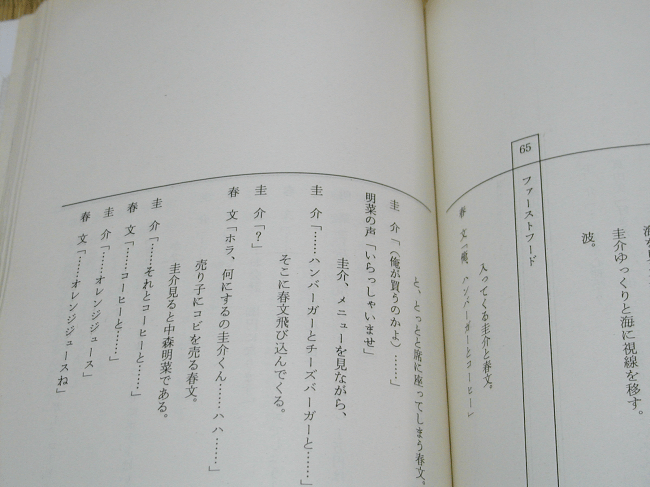 波。
圭介ゆっくりと海に視線を移す。
65
ファーストフード
入ってくる圭介と春文。
春　文「俺、ハンバーガーとコーヒー」
と、とっとと席に座ってしまう春文。
圭　介「（俺が買うのかよ）……」
明菜の声「いらっしゃいませ」
圭介、メニューを見ながら、
圭　介「……ハンバーガーとチーズバーガーと……」
そこに春文飛び込んでくる。
圭　介「？」
春　文「ホラ、何にするの圭介くん……ハハ……」
売り子にコビを売る春文。
圭介見ると中森明菜である。
圭　介「……それとコーヒーと……」
春　文「……コーヒーと……」
圭　介「……オレンジジュース」
春　文「……オレンジジュースね」